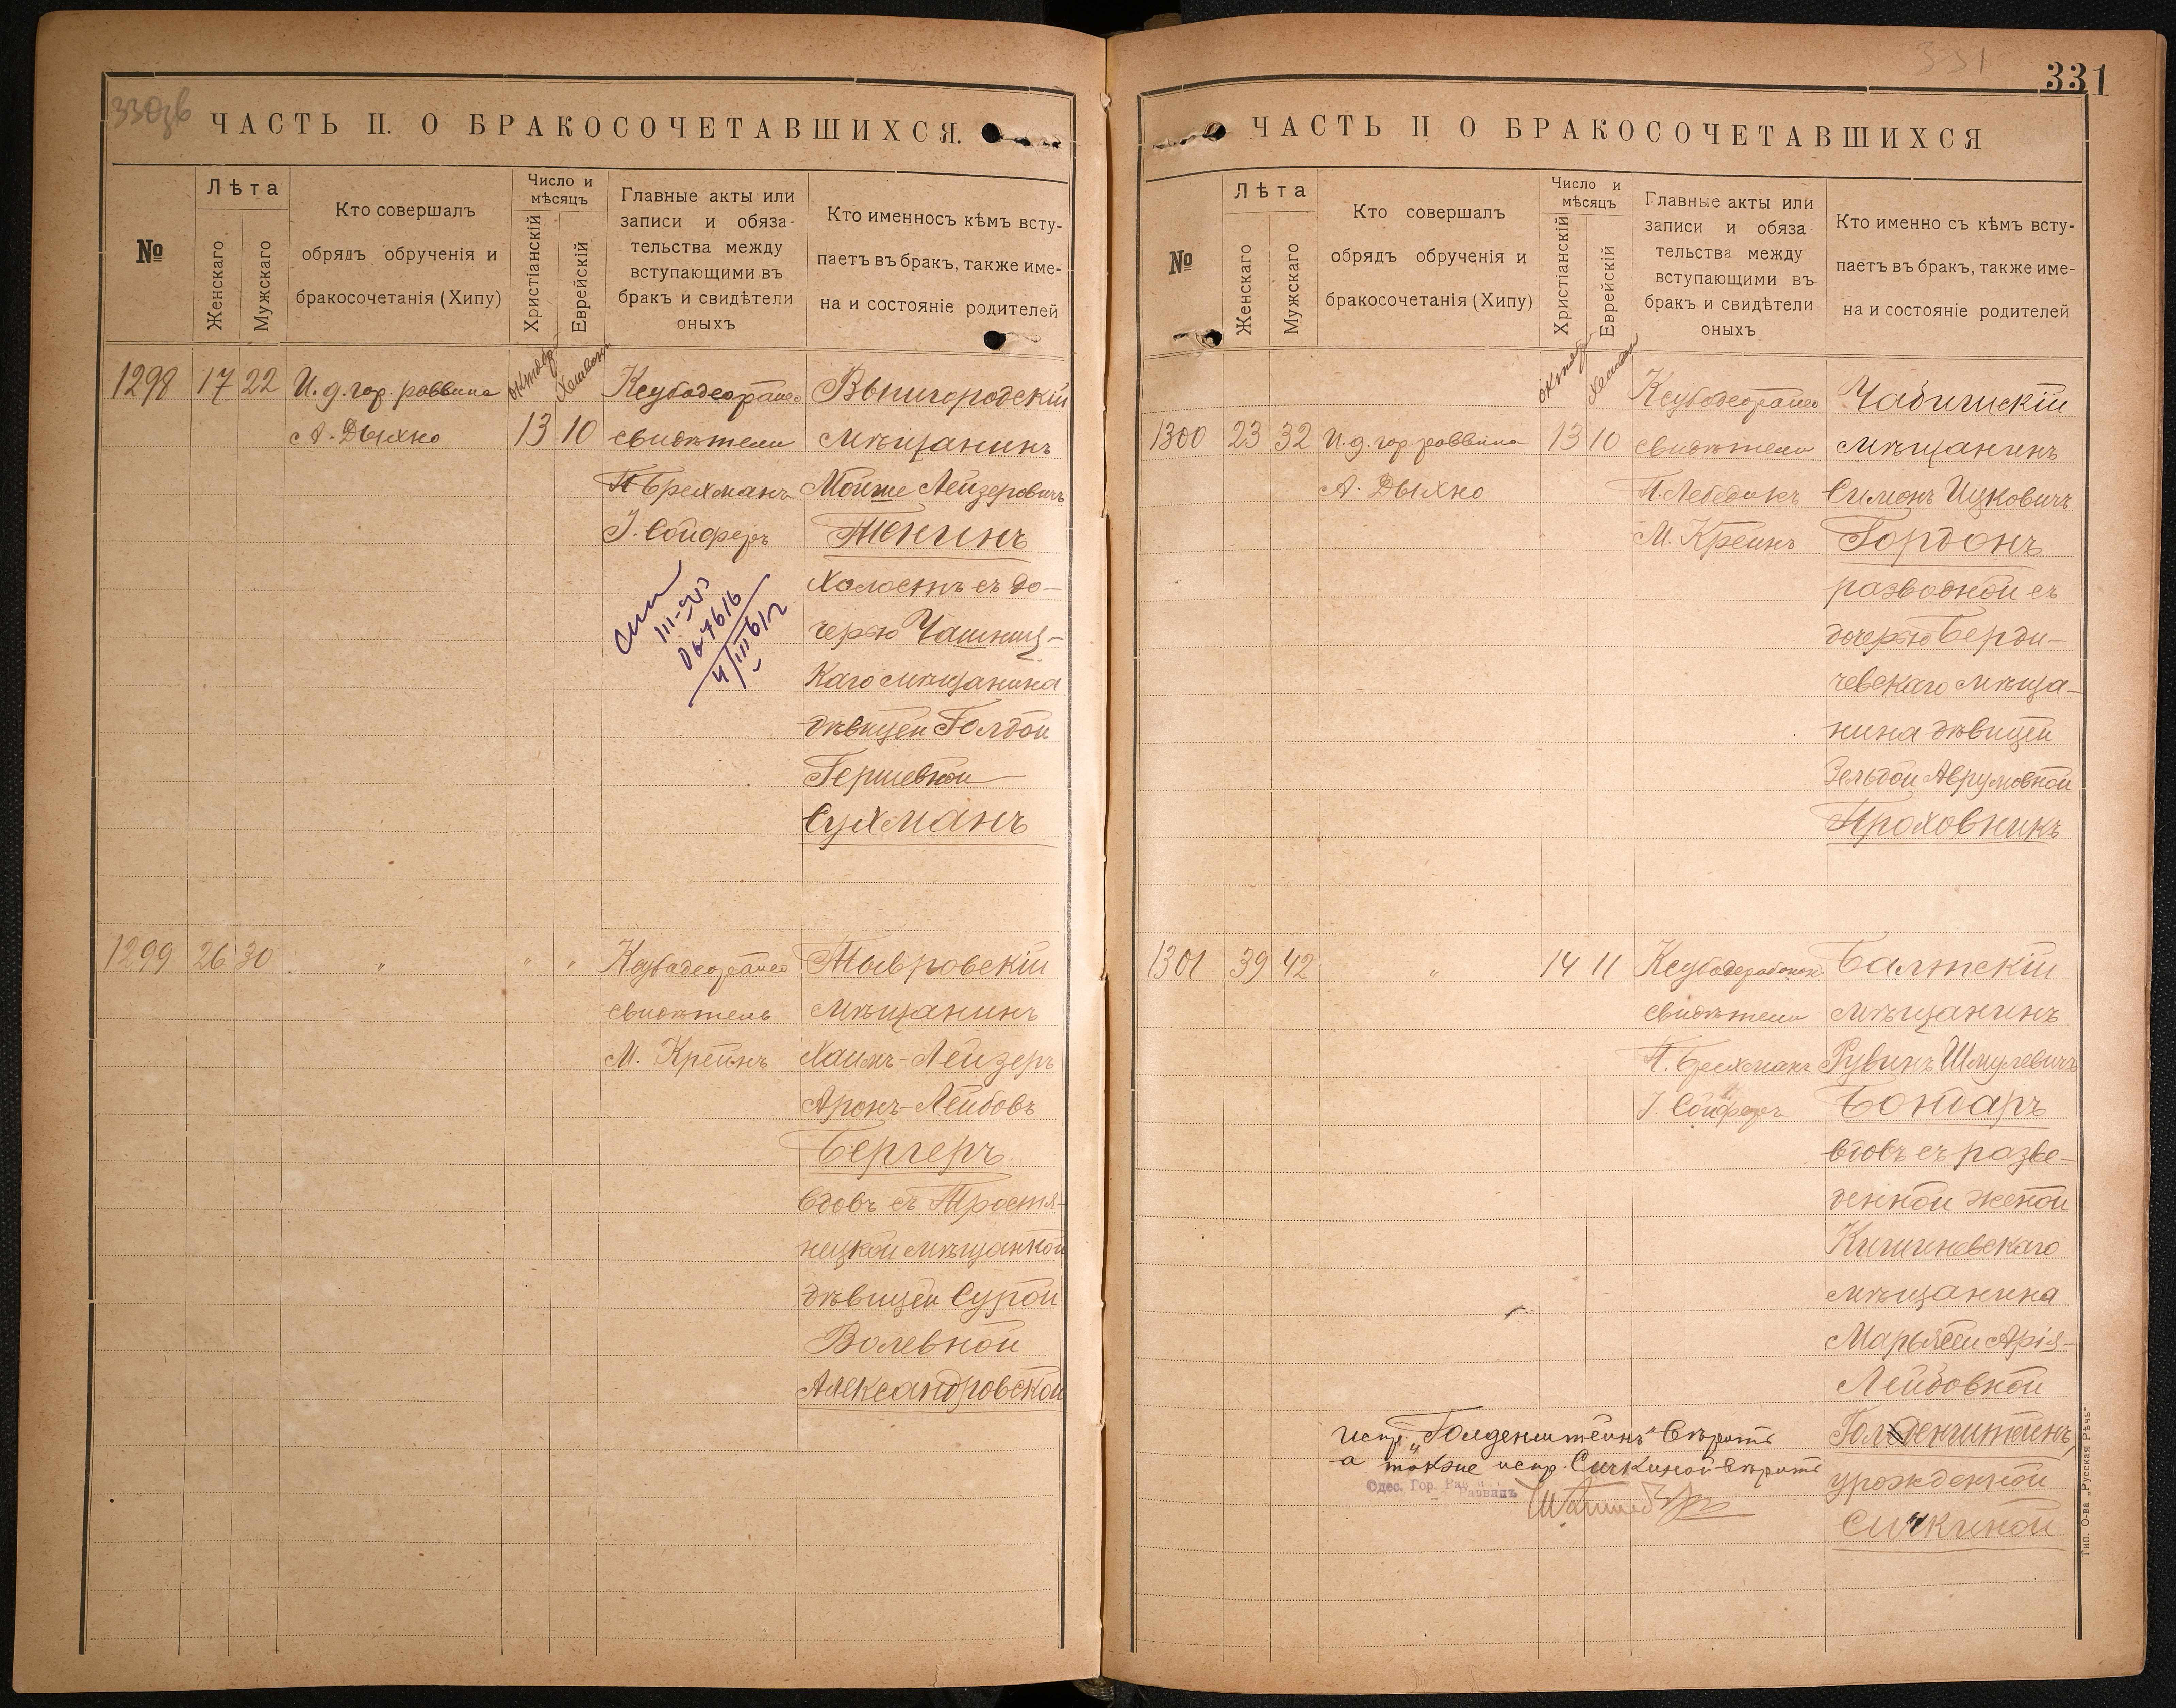 330зв
ЧАСТЬ II. О БРАКОСОЧЕТАВШИХСЯ.
№
Лѣта
Женскаго
Мужскаго
Кто совершалъ
обрядъ обрученія и
бракосочетанія (Хипу)
Число и
мѣсяцъ
Христіанскій
Еврейскій
Главные акты или
записи и обяза-
тельства между
вступающими въ
бракъ и свидѣтели
оныхъ
Кто именносъ кѣмъ всту-
паетъ въ бракъ, также име-
на и состояніе родителей
1298 17 22 И.д.гор. раввина
А. Дыхно
октябр.
Хешвонъ
13 10
свидѣтели
П Брехманъ
І. Сойферъ
Вышгородскій
мѣщанинъ
Мойше Лейзеровичъ
Тенинъ
Холостъ съ до-
черью Чашниц-
каго мѣщанина
дѣвицей Голдой
Гершевной
Сухманъ
1299 26 30 " " "
свидѣтель
М. Крейнъ
Тывровскій
мѣщанинъ
Хаимъ-Лейзеръ
Аронъ-Лейбовъ
Бергеръ
вдовъ съ Тростя-
нецкой мѣщанкой
дѣвицей Сурой
Волевной
Александровской
331
331
ЧАСТЬ II О БРАКОСОЧЕТАВШИХСЯ
№
Лѣта
Женскаго
Мужскаго
Кто совершалъ
обрядъ обрученія и
бракосочетанія (Хипу)
Число и
мѣсяцъ
Христіанскій
Еврейскій
Главные акты или
записи и обяза
тельства между
вступающими въ
бракъ и свидѣтели
оныхъ
Кто именно съ кѣмъ всту-
паетъ въ бракъ, также име-
на и состояніе родителей
октябр
Хешвон
1300 23 32 И.д. гор. раввина 13 10
А. Дыхно
свидѣтели
П. Лебедикъ
М. Крейнъ
мѣщанинъ
Симонъ Ицковичъ
Гордонъ
разводной съ
дочерью Берди-
чевскаго мѣща-
нина дѣвицей
Зельдой Аврумовной
Проховникъ
1301 39 42 " 14 11
свидѣтели
П. Брехманъ
І. Сойферъ
Балтскій
мѣщанинъ
Рувинъ Шмулевичъ
Бондарь
вдовъ съ разве-
денной женой
Кишиневскаго
мѣщанина
Марьясей Арія-
Лейбовной
Голденштейнъ,
урожденной
Сичкиной
испр. "Голденштейнъ" вѣрить
а также испр. Сичкиной вѣрить
Одес. Гор. Раввинъ
Тип. О-ва „Русская Рѣчь"